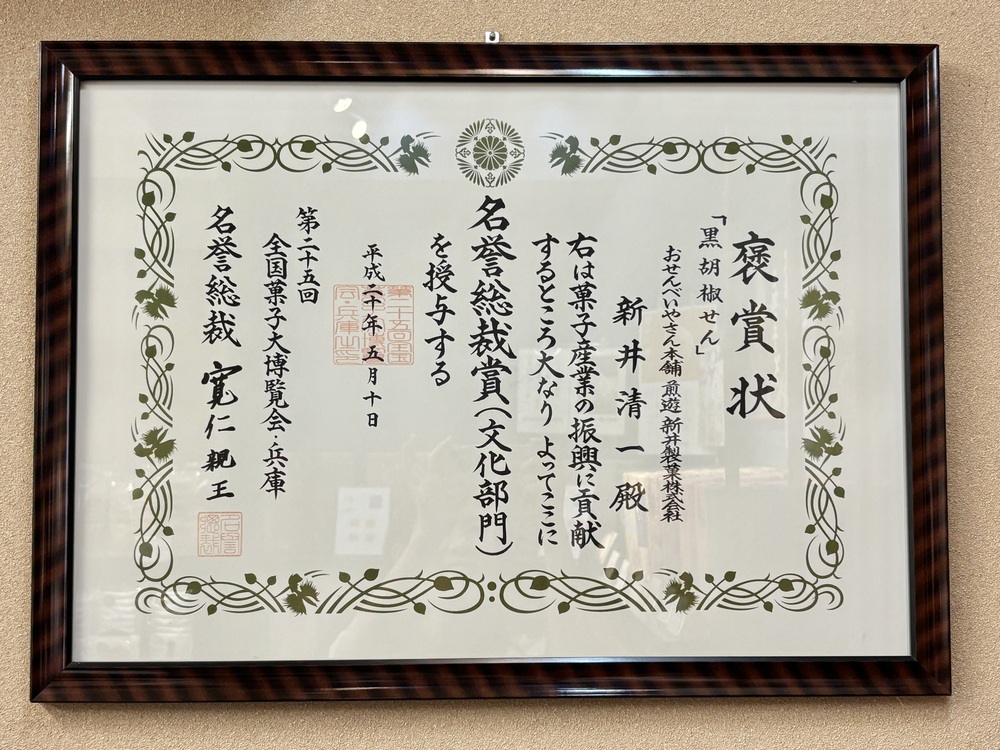 褒賞状
「黒胡椒せん」
おせんべいやさん本舗 煎遊 新井製菓株式会社
新井清一殿
右は菓子産業の振興に貢献
するところ大なり よってここに
名誉総裁賞(文化部門)
を授与する
平成二十年五月十日
第二十五回
全国菓子大博覧会・兵庫
名誉総裁 寛仁親王